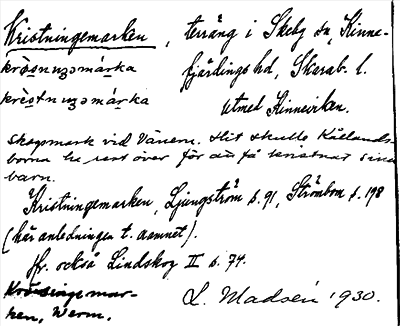 Kristningemarken, terräng i Skeby sn, Kinne-
fjärdings hd, Skarab. l.
utmed Kinneviken.
Skogsmark vid Vänern. Hit skulle Kållands-
borna ha rest över för att få kristnat sina
barn.
Kristningemarken, Ljungström s. 91, Strömbom s. 198
(här anledningen t. namnet).
Jfr. också Lindskog II s. 74.
ken, Werm.
L. Madsén 1930.